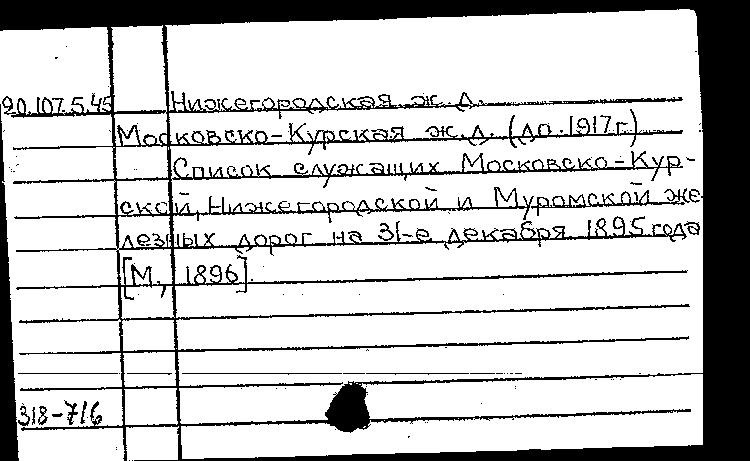 90.107.5.45 Нижегородская ж.д.
Московско-Курская ж.д. (до.1917г)
Список служащих Московско-Кур-
ской, Нижегородской и Муромской же
лезных дорог на 31-е декабря 1895 года
[М., 1896].
318-716